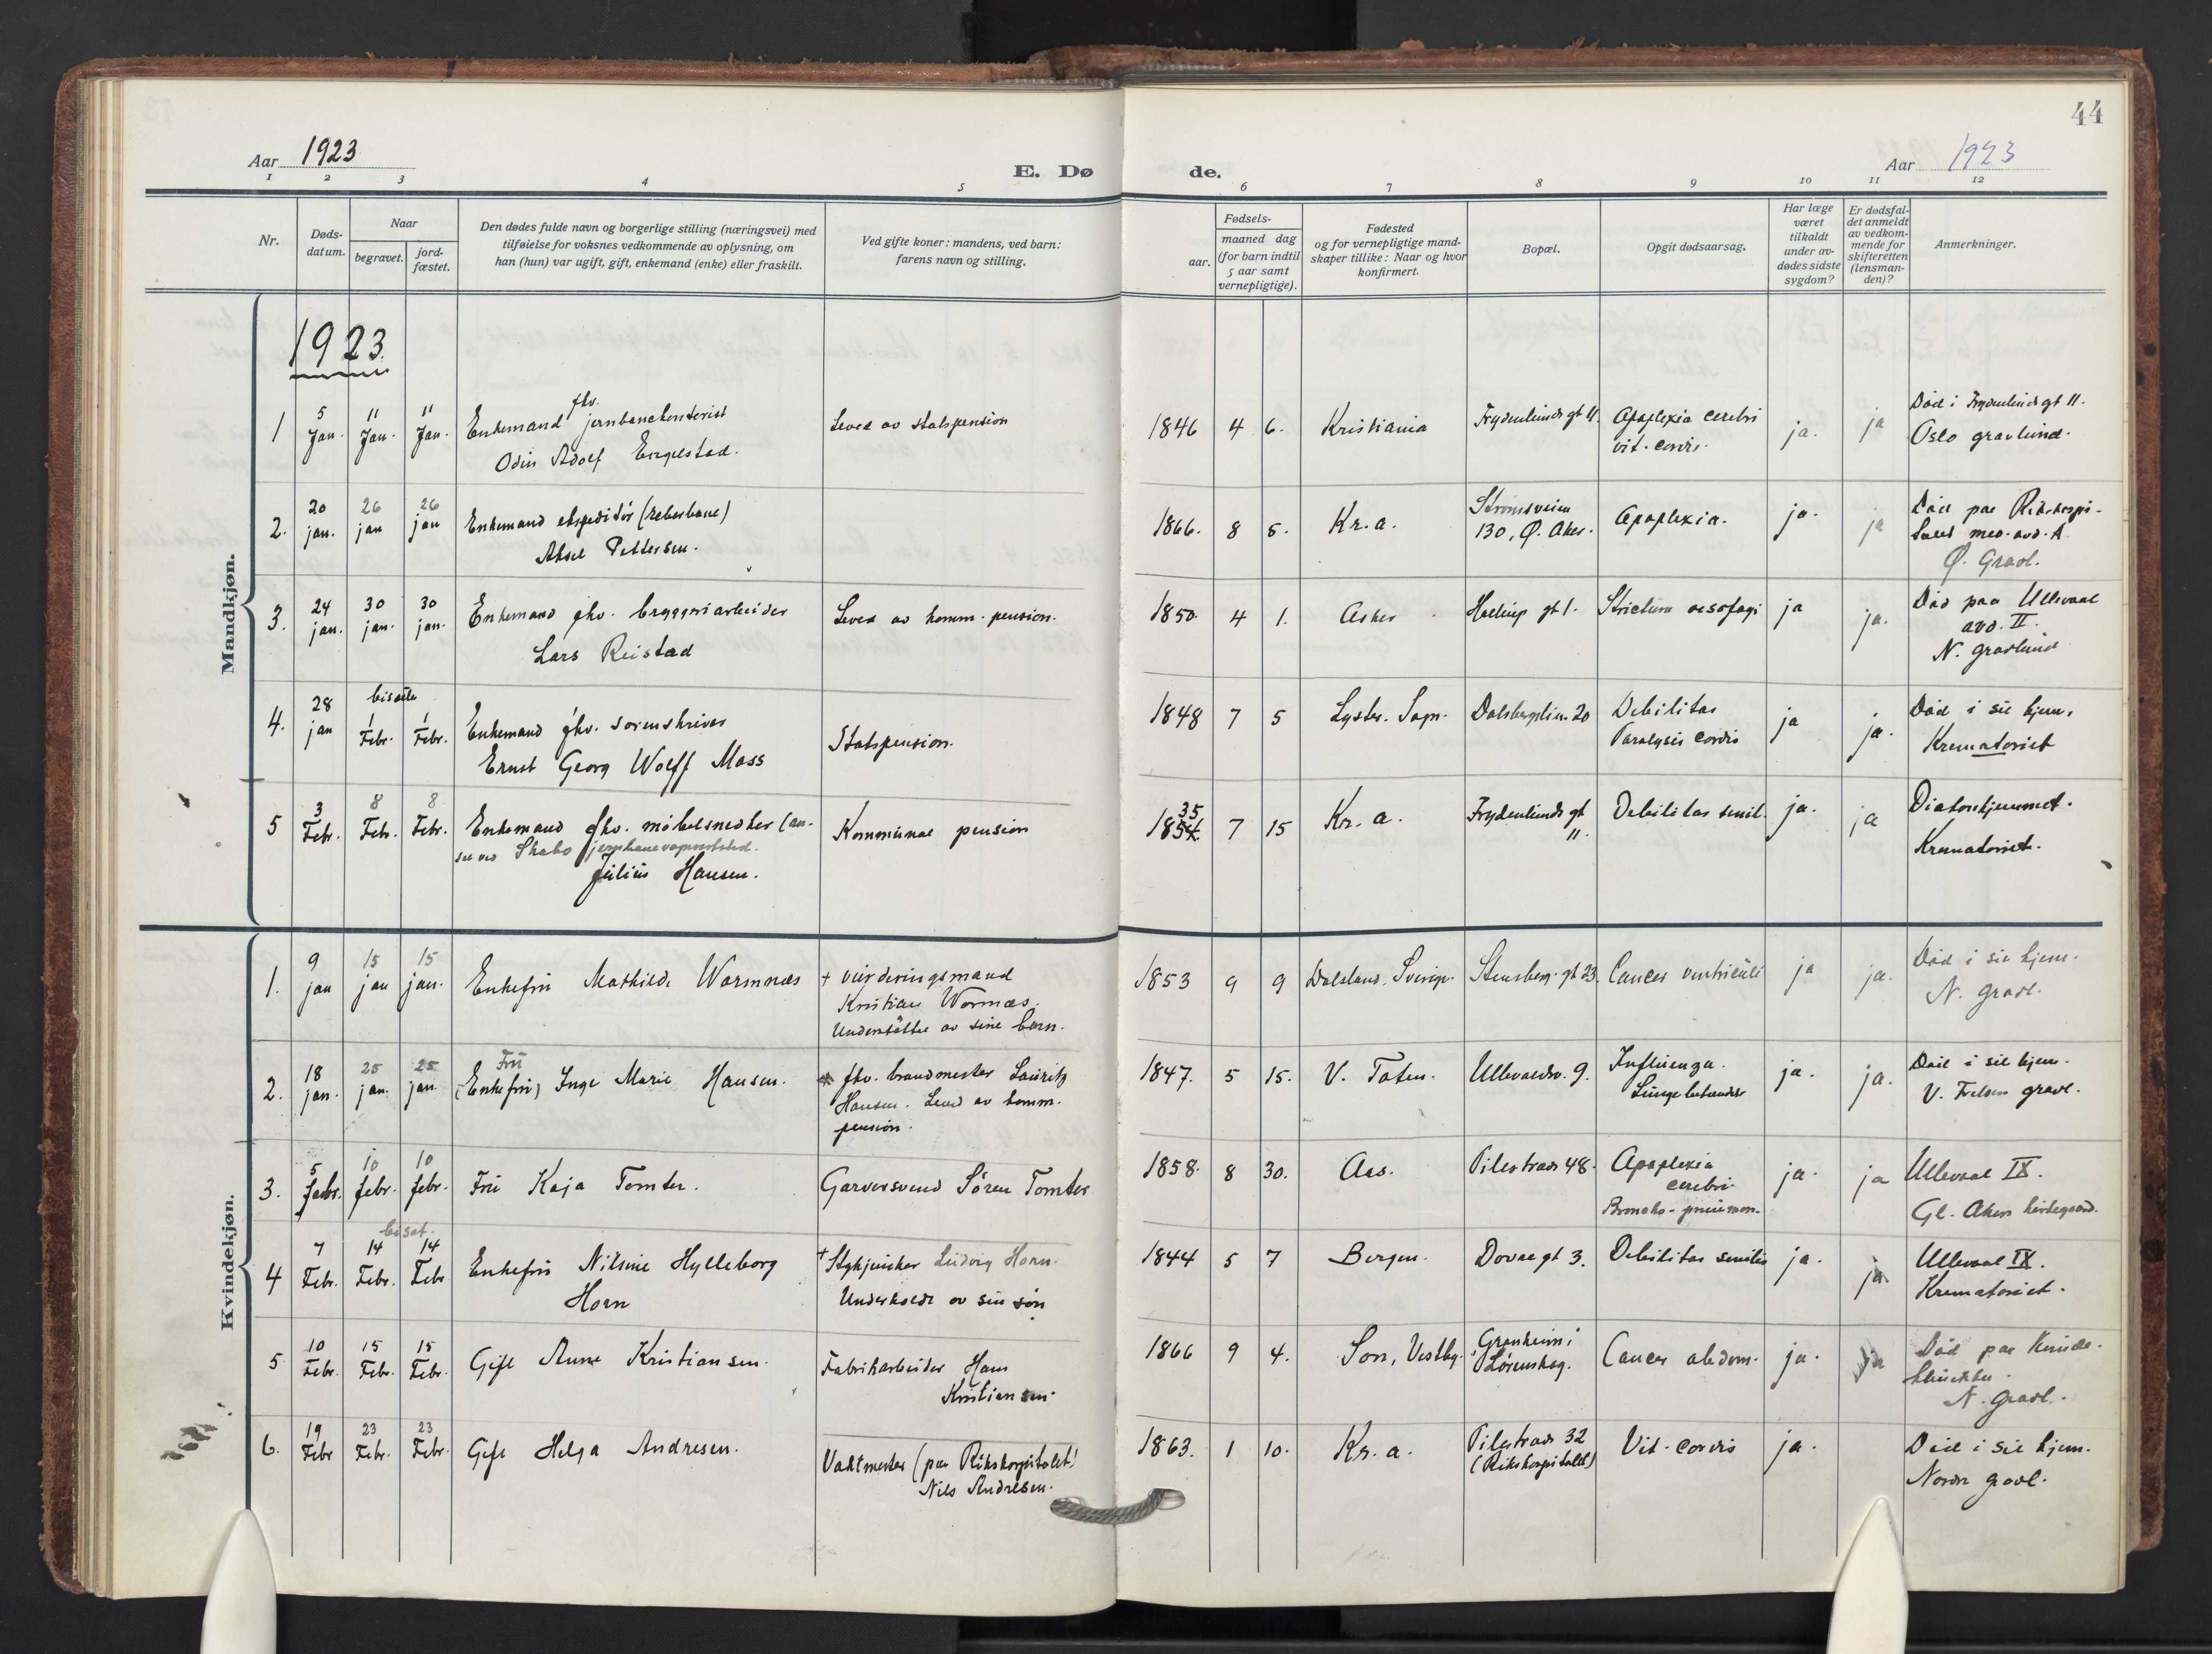 44
Aar 1923
E. Dø
de.
Aar 1923
1 2 3 4 5 6 7 8 9 10 11 12
Nr.
Døds-
datum.
Naar
begravet.
jord-
fæstet.
Den dødes fulde navn og borgerlige stilling (næringsvei) med
tilføielse for voksnes vedkommende av oplysning, om
han (hun) var ugift, gift, enkemand (enke) eller fraskilt.
Ved gifte koner: mandens, ved barn:
farens navn og stilling.
Fødsels-
aar.
maaned dag
(for barn indtil
5 aar samt
vernepligtige).
Fødested
og for vernepligtige mand-
skaper tillike: Naar og hvor
konfirmert.
Bopæl.
Opgit dødsaarsag.
Har læge
været
tilkaldt
under av-
dødes sidste
sygdom?
Er dødsfal-
det anmeldt
av vedkom-
mende for
skifteretten
(lensman-
den)?
Anmerkninger.
Mandkjøn.
1923.
1
5 Jan.
11 Jan.
11 Jan.
Enkemand fhv. jernbanekontorist
Odin Adolf Engelstad.
Leved av statspension
1846 4 6.
Kristiania
Frydenlunds gt 11.
Apoplexia cerebri
vit. cordis.
ja.
ja
Død i Frydenlunds gt 11.
Oslo gravlund.
2.
20 jan.
26 jan
26 jan
Enkemand ekspeditør (reberbane)
Aksel Pettersen.
1866. 8 5.
Kr.a.
Strømsveien
130, Ø. Aker.
Apoplexia.
ja.
ja
Død paa Rikshospi-
talet med. avd. A
Ø. Gravl.
3.
24 jan.
30 jan.
30 jan.
Enkemand fhv. bryggeriarbeider
Lars Reistad
Leved av komm. pension.
1850. 4 1.
Asker
gt 1.
Strictura oesofagi
ja
ja.
Død paa Ullevaal
avd. II.
N. gravlund
4.
28 jan
bisatte
1 Febr.
1 Febr.
Enkemand fhv. sorenskriver
Ernst Georg Wolff Mass
Statspension.
1848 7 5
Lyster. Sogn.
Dalsbergstien 20
Debilitas
Paralysis cordis
ja
ja.
Død i sit hjem.
Krematoriet
5
3 Febr.
8 Febr.
8 Febr.
Enkemand fhv. møbelsnedker (an-
sat ved Skabo jernbanevognverksted.
Julius Hansen.
Kommunal pension
35
1854. 7 15
Kr.a.
Frydenlunds gt
11.
Debilitas senil.
ja.
ja
Diakonhjemmet.
Krematoriet.
Kvindekjøn.
1.
9 jan
15 jan
15 jan.
Enkefru Mathilde Warmnæs
+ vurderingsmand
Kristian Wormæs.
Understøttet av sine børn.
1853 9 9
Dalsland, Sverige.
Stensberg. gt 23.
Cancer ventriculi
ja
ja.
Død i sit hjem.
N. Gravl.
2.
18 jan.
25 jan.
25 jan.
Fru
(Enkefru) Inge Marie Hansen.
fhv. brandmester Lauritz
Hansen. Leved av komm.
pension.
1847. 5 15.
V. Toten.
Ullevaaldsv. 9.
Influenza.
Lungebetændelse
ja.
ja.
Død i sit hjem.
V. Frelsers gravl.
3.
5 Febr.
10 febr.
10 febr.
Fru Kaja Tomter.
Garversvend Søren Tomter
1858. 8 30.
Aas.
Pilestræde 48.
Apoplexia
cerebri.
Broncho-pneumon.
ja.
ja
Ullevaal IX.
Gl. Aker kirkegaard.
4
7 Febr.
biset.
14 Febr.
14 Febr
Enkefru Nilsine Hylleborg
Horn
+ Stykjunker Ludvig Horn.
Underholdt av sin søn
1844 5 7
Bergen.
Dovregt 3.
Debilitas senilis
ja.
ja.
Ullevaal IX.
Krematoriet.
5
10 Febr.
15 Febr.
15 Febr.
Gift Anne Kristiansen.
Fabrikarbeider Hans
Kristiansen.
1866 9 4.
Son, Vestby.
Granheim i
Lørenskog.
Cancer abdom.
ja.
ja
Død paa Kvinde-
klinikken.
N. Gravl.
6.
19 Febr
23 Febr.
23 Febr.
Gift Helga Andresen.
Vaktmester (paa Rikshospitalet)
Nils Andresen.
1863. 1 10.
Kr.a.
Pilestræde 32
(Rikshospitalet)
Vit. cordis
ja.
Død i sit hjem.
Nordre gravl.